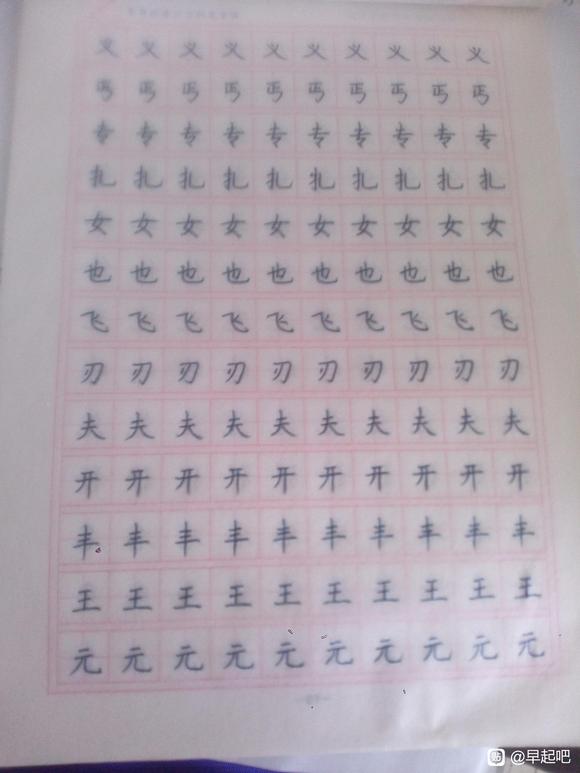 义 义 义 义 义 义 义 义 义 义
丐 丐 丐 丐 丐 丐 丐 丐 丐 丐
专 专 专 专 专 专 专 专 专 专
扎 扎 扎 扎 扎 扎 扎 扎 扎 扎
女 女 女 女 女 女 女 女 女 女
也 也 也 也 也 也 也 也 也 也
飞 飞 飞 飞 飞 飞 飞 飞 飞 飞
刃 刃 刃 刃 刃 刃 刃 刃 刃 刃
夫 夫 夫 夫 夫 夫 夫 夫 夫 夫
开 开 开 开 开 开 开 开 开 开
丰 丰 丰 丰 丰 丰 丰 丰 丰 丰
王 王 王 王 王 王 王 王 王 王
元 元 元 元 元 元 元 元 元 元
贴 @早起吧